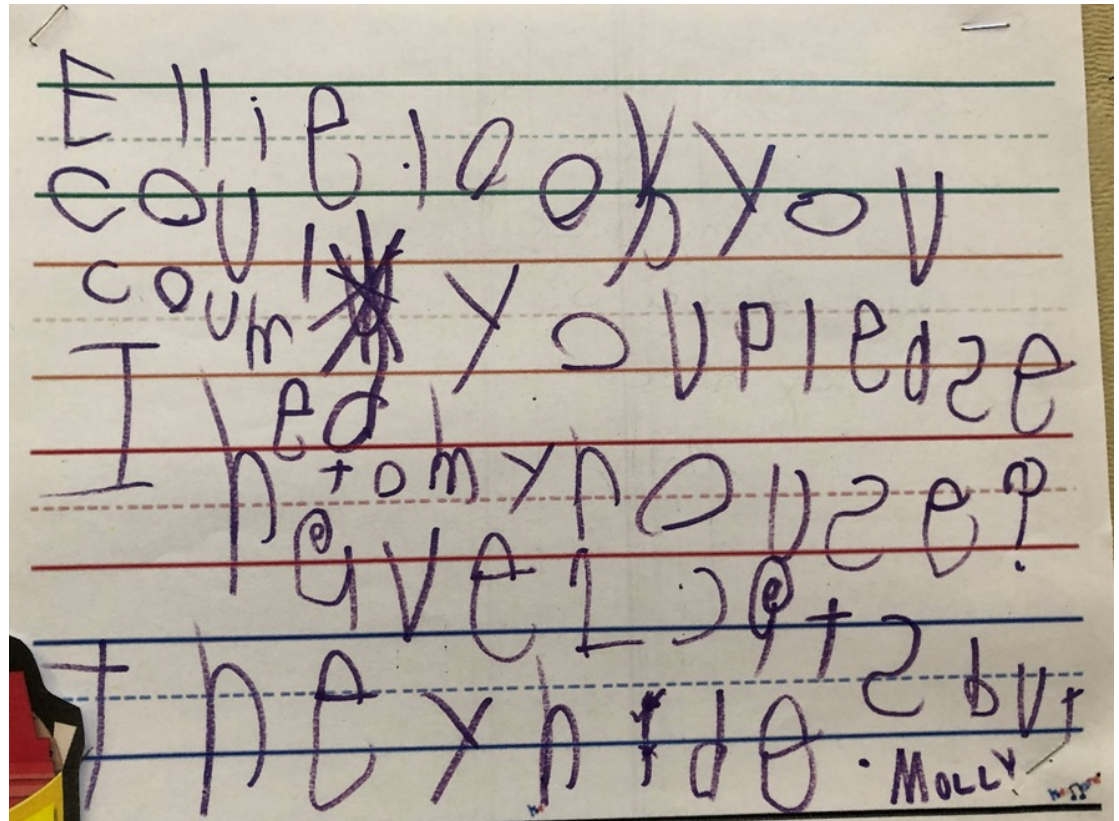 Ellie. look you
cou l
coum you please
I ed
to my house?
have 2 cats but
They hide.
MOLLY